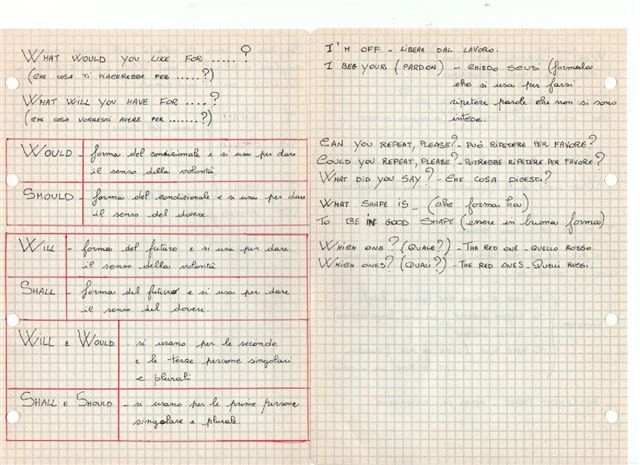 WHAT WOULD YOU LIKE FOR ..... ?
(CHE COSA TI PIACEREBBE PER .....?)
WHAT WILL YOU HAVE FOR ....?
(CHE COSA VORRESTI AVERE PER .......?)
WOULD - forma del condizionale e si usa per dare
il senso della volontà
SHOULD - forma del condizionale e si usa per dare
il senso del dovere.
WILL - forma del futuro e si usa per dare
il senso della volontà
SHALL - forma del futuro e si usa per dare
il senso del dovere.
WILL E WOULD - si usano per le seconde
e le terze persone singolari
e plurali
SHALL E SHOULD - si usano per le prime persone
singolare e plurale.
I'M OFF - LIBERA DAL LAVORO.
I BEG YOUR (PARDON) - CHIEDO SCUSI (formula
che si usa per farsi
ripetere parole che non si sono
intese.
CAN YOU REPEAT, PLEASE? - PUÒ RIPETERE PER FAVORE?
COULD YOU REPEAT, PLEASE? - POTREBBE RIPETERE PER FAVORE?
WHAT DID YOU SAY? - CHE COSA DICESTI?
WHAT SHAPE IS - (che forma ha)
TO BE IN GOOD SHAPE (essere in buona forma)
WHICH ONE? (QUALE?) - THE RED ONE - QUELLO ROSSO.
WHICH ONES? (QUALI?) - THE RED ONES - QUELLI ROSSI.